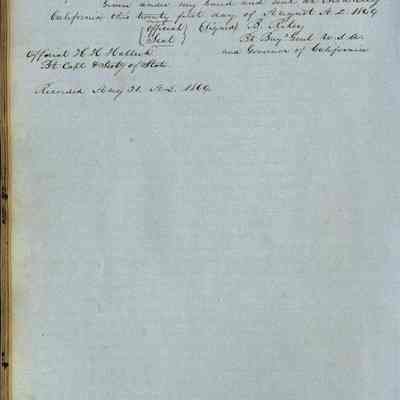 Given under my hand and seal at Monterey
California this twenty first day of August A.D. 1849
{Official Seal} (Signed) B. Riley
Bt. Brig. Genl. U.S.A.
Official H. W. Halleck and Governor of California
Bt. Capt. & Secty of State.
Recorded Aug 31. A.D. 1849